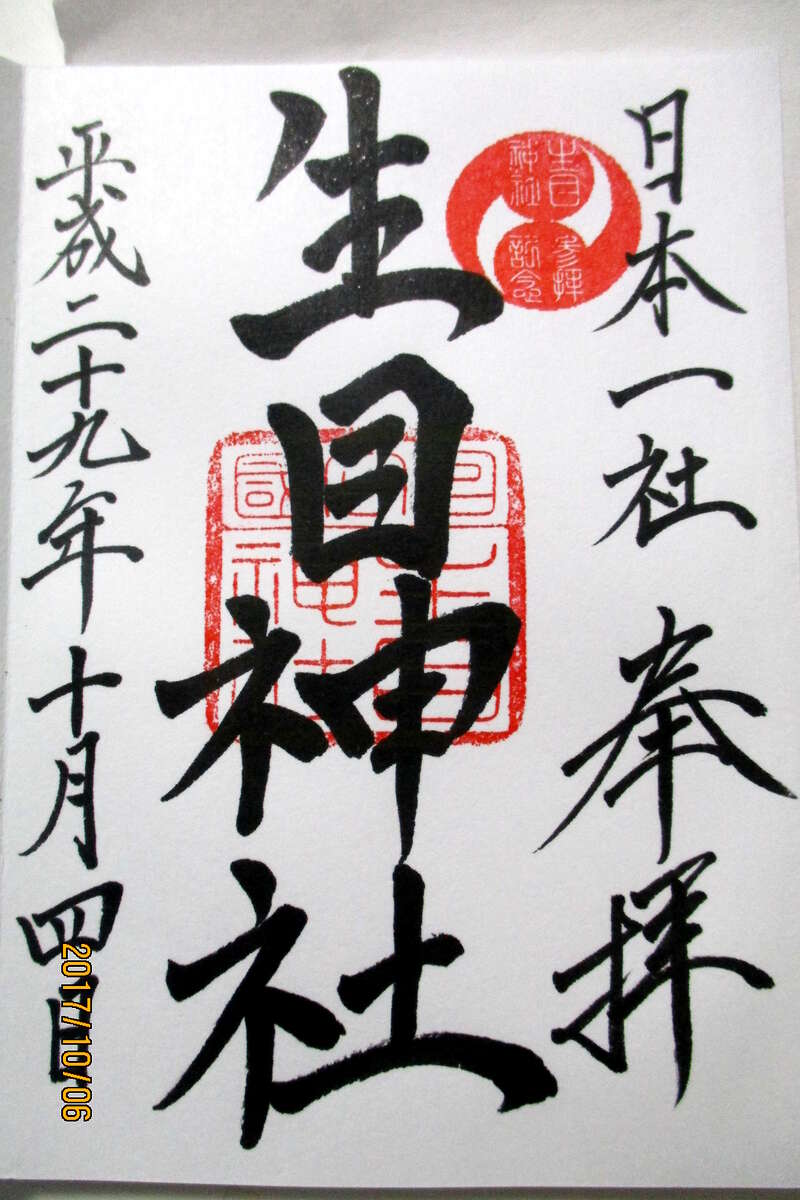 日本一社 奉拝
生目神社
参拝
記念
生目神社
平成二十九年十月四日
2017/10/06